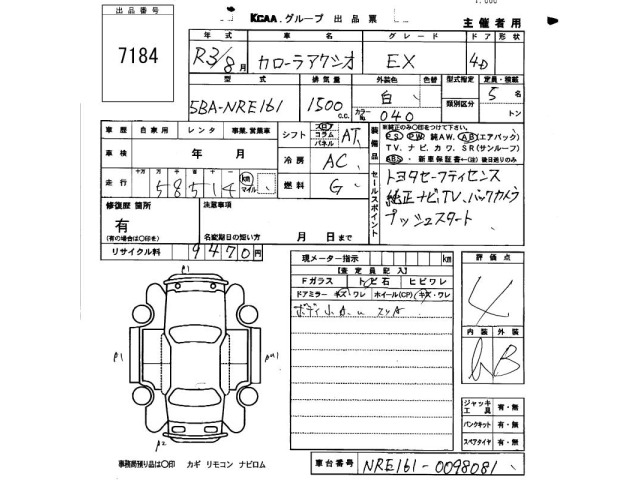 出品番号
7184
KCAA.グループ 出品票
主催者用
年式 車名 グレード ドア 形状
R3/8月 カローラアクシオ EX 4D
型式 排気量 外装色 色替 型式指定 定員・積載
5BA-NRE161 1500 c.c. 白 カラーNo. 040 類別区分 5 名
トン
車歴 自家用 レンタ 事業、営業車
車検 年 月
走行 十万 万 千 百 十 km マイル
58514
シフト フロア コラム パネル AT
冷房 AC
燃料 G
装備品
※純正のみ○印をつけて下さい。
PS PW 純AW. AB(エアバック)
TV. ナビ. カワ. SR(サンルーフ)
ABS ・新車保証書←(注)後日送りのみ
セールスポイント
トヨタセーフティセンス
純正ナビ、TV、バックカメラ
プッシュスタート
修復歴 箇所
有
(有の場合は○印を)
注意事項
名変期日の短い方 月 日まで
リサイクル料 9470円
現メーター指示 km
【査定員記入】
Fガラス トビ石 ヒビワレ
ドアミラー キズ・ワレ ホイール(CP) キズ・ワレ
評価点
4
内装 外装
B
ジャッキ工具 有・無
パンクキット 有・無
スペアタイヤ 有・無
車台番号 NRE161-0098081
事務局預り品は○印 カギ リモコン ナビロム